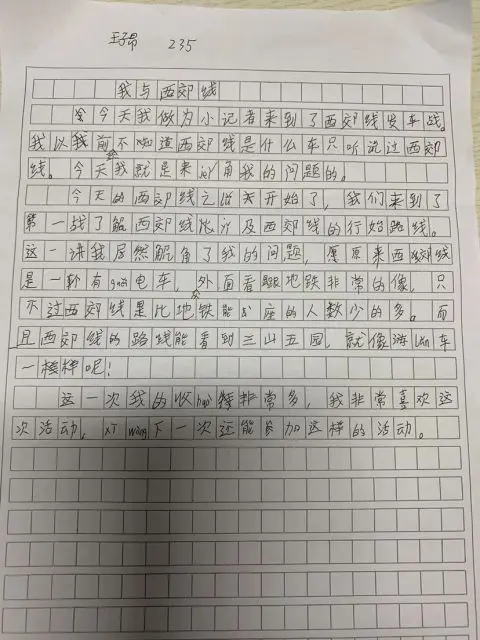 王子昂 235
我与西郊线
今天我做为小记者来到了西郊线发车战。
我以前不知道西郊线是什么车只听说过西郊
线。今天我就是来jie角我的问题的。
今天的西郊线之旅天开始了，我们来到了
第一战了解西郊线化计及西郊线的行始路线。
这一讲我居然解角了我的问题，原来西郊线
是一种有gui电车，外面看跟地铁非常的像，只
不过西郊线是比地铁能坐的人数少的多。而
且西郊线的路线能看到三山五园，就像游lan车
一样呢！
这一次我的收huo非常多，我非常喜欢这
次活动，xiwang下一次还能参加这样的活动。